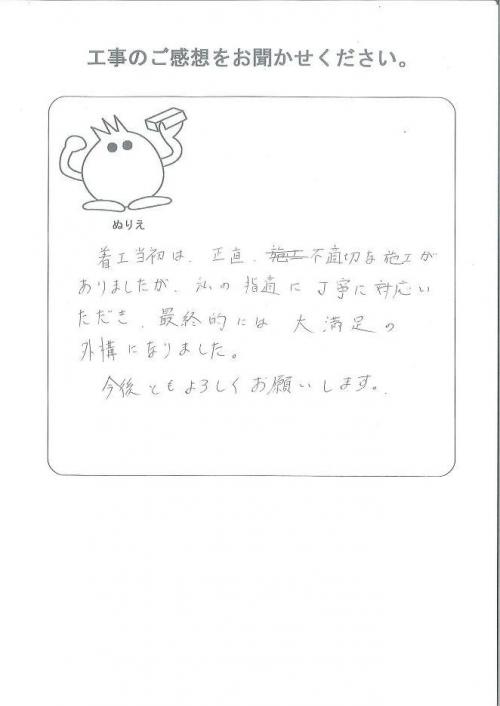 工事のご感想をお聞かせください。
ぬりえ
着工当初は、正直、不適切な施工が
ありましたが、私の指適に丁寧に対応い
ただき、最終的には大満足の
外構になりました。
今後ともよろしくお願いします。